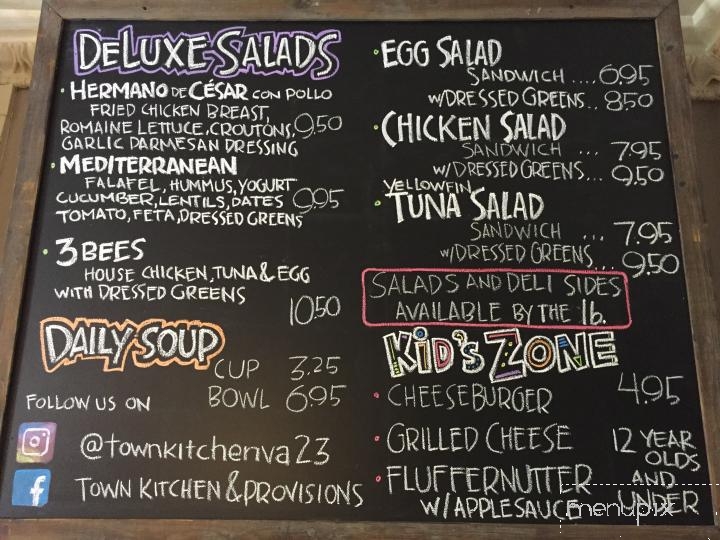 DELUXE SALADS
• HERMANO DE CÉSAR CON POLLO
FRIED CHICKEN BREAST,
ROMAINE LETTUCE, CROUTONS, 9,50
GARLIC PARMESAN DRESSING
• MEDITERRANEAN
FALAFEL, HUMMUS, YOGURT
CUCUMBER, LENTILS, DATES 9,95
TOMATO, FETA, DRESSED GREENS
• 3 BEES
HOUSE CHICKEN, TUNA & EGG
WITH DRESSED GREENS
10.50
DAILY SOUP
CUP 3.25
BOWL 6.95
FOLLOW US ON
@townkitchenva23
f TOWN KITCHEN & PROVISIONS
• EGG SALAD
SANDWICH .... 6.95
W/DRESSED GREENS.. 8.50
• CHICKEN SALAD
SANDWICH ... 7.95
W/DRESSED GREENS... 9.50
YELLOWFIN
• TUNA SALAD
SANDWICH ... 7.95
W/DRESSED GREENS... 9.50
SALADS AND DELI SIDES
AVAILABLE BY THE lb.
KiD'S ZONE
• CHEESEBURGER 4.95
• GRILLED CHEESE
• FLUFFERNUTTER
W/ APPLESAUCE
12 YEAR
OLDS
AND
UNDER
menupix